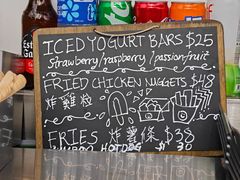 ICED YOGURT BARS $25
strawberry/raspberry/passion-fruit
FRIED CHICKEN NUGGETS $48
炸雞粒
FRIES 炸薯條 $38
JUMBO HOTDOG $ 30